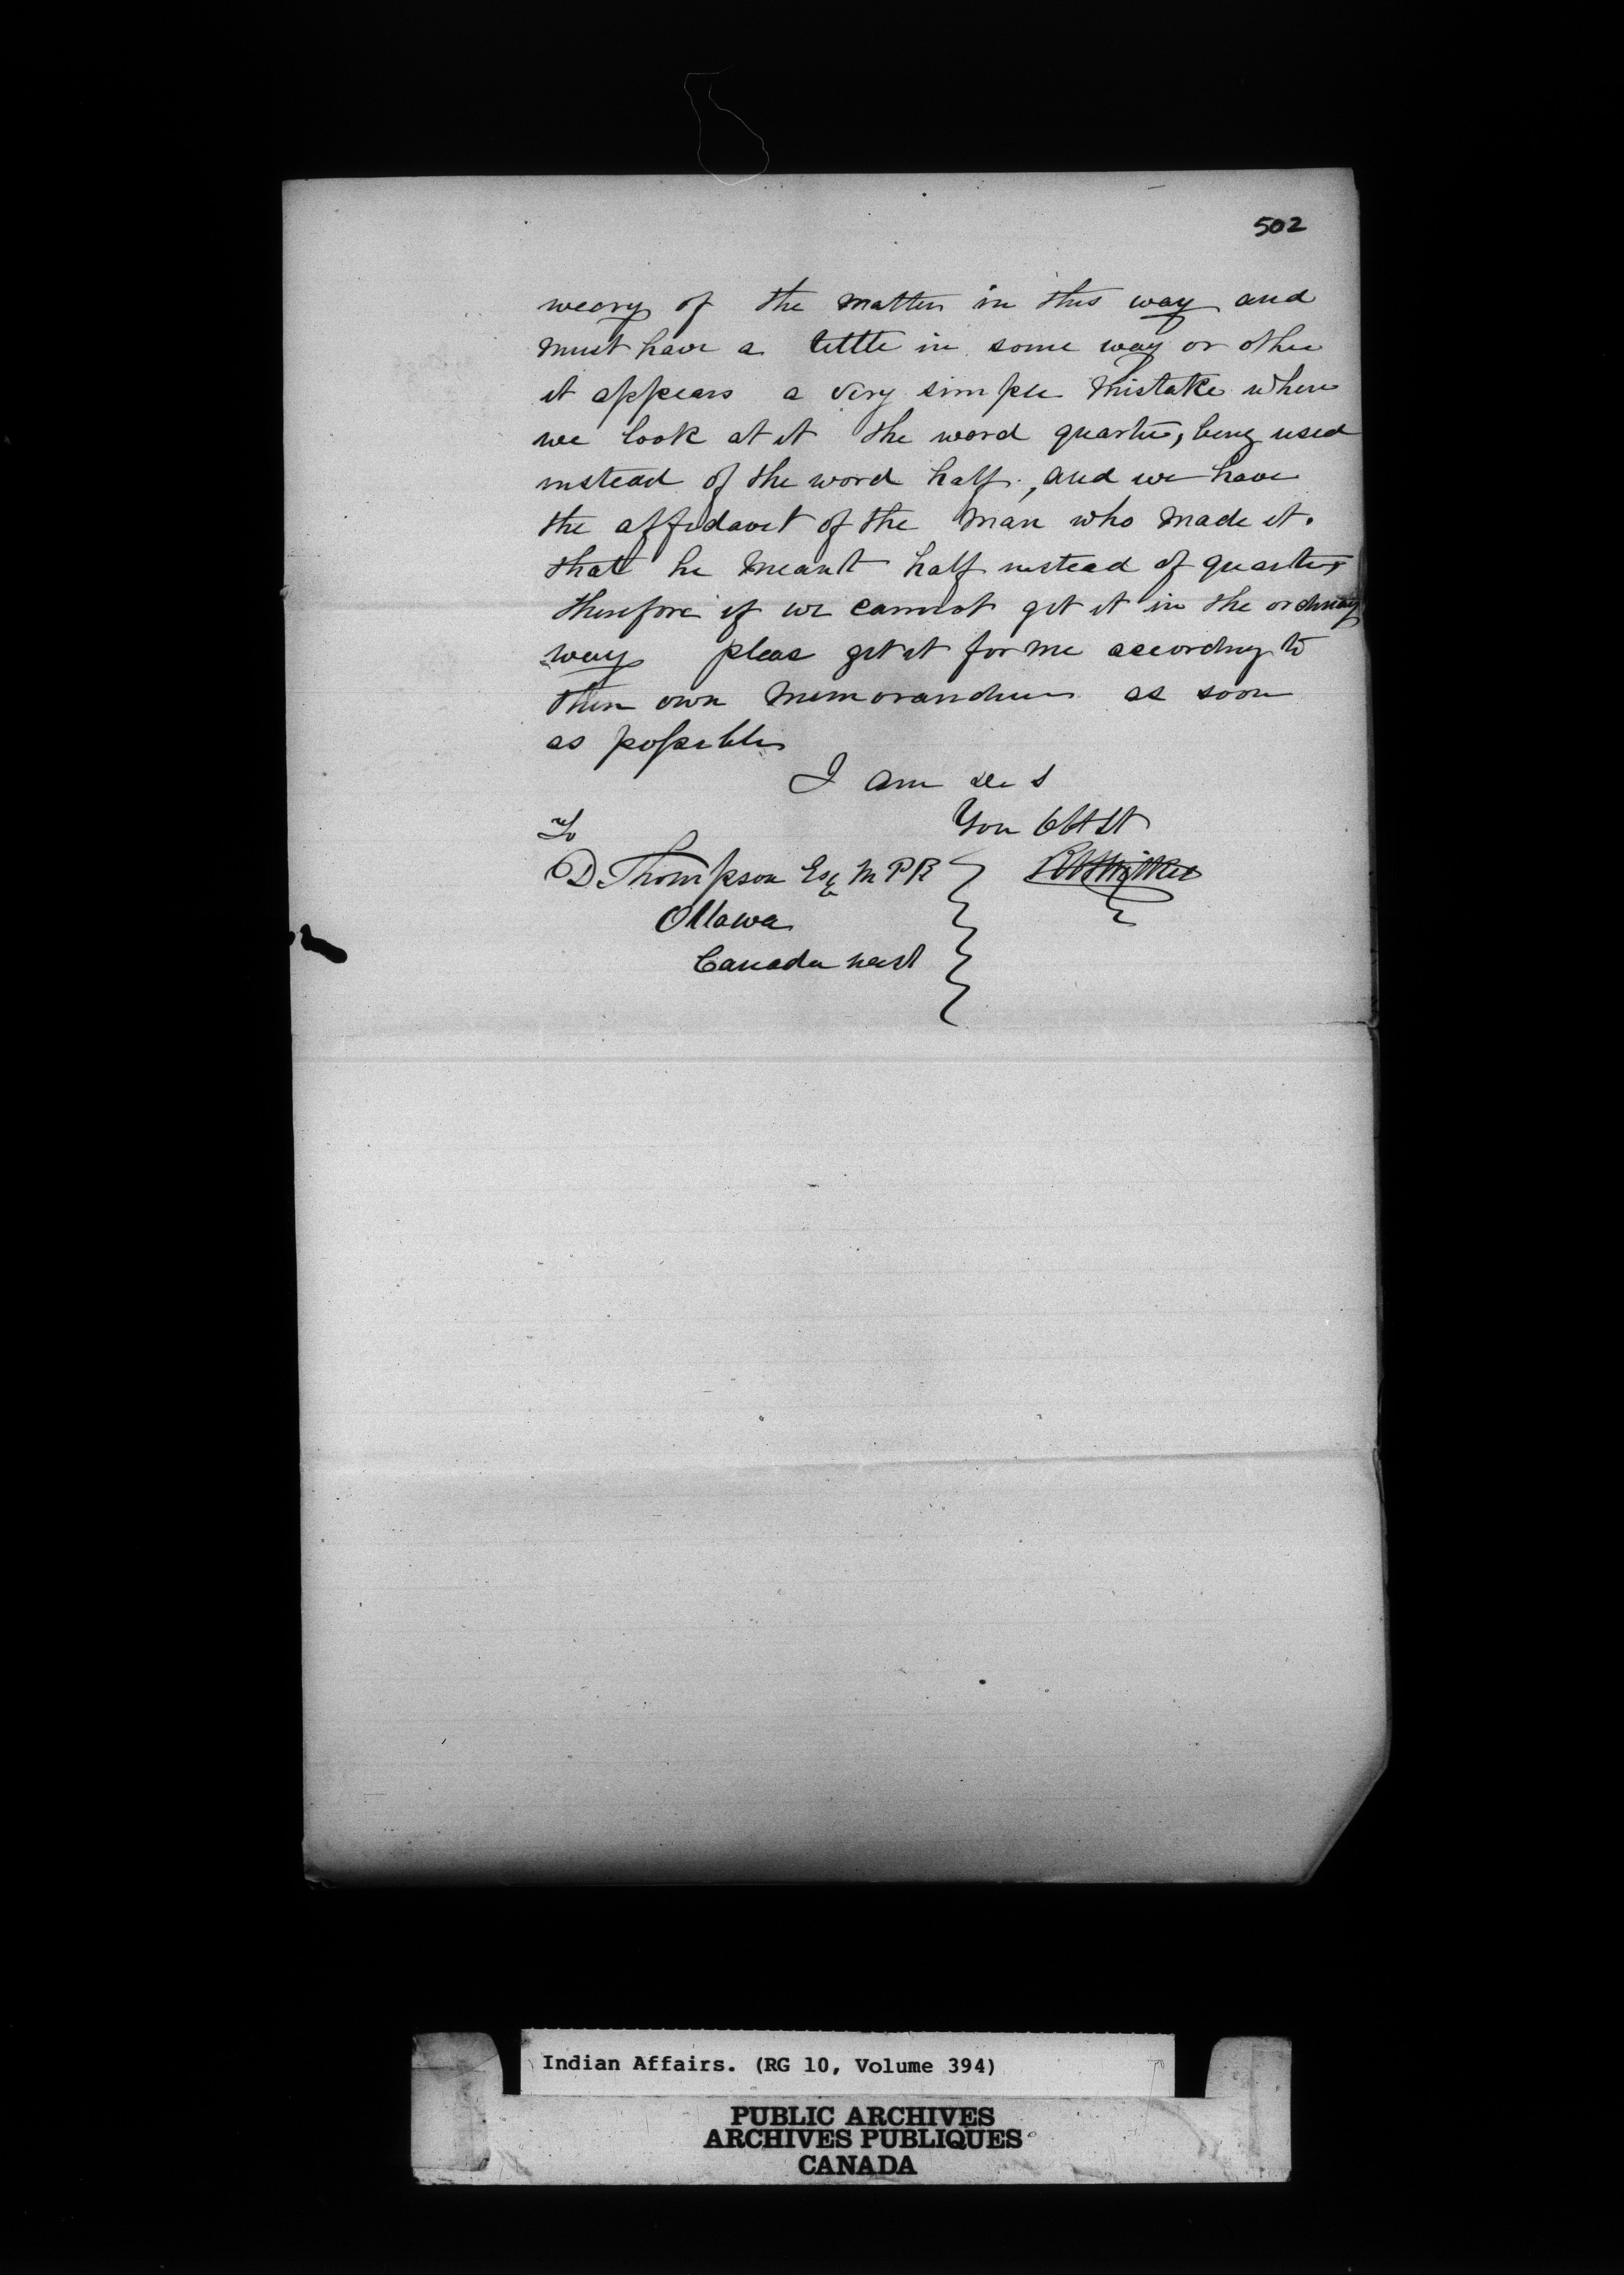 502
weary of the matter in this way and
must have a tittle in some way or other
it appears a very simple mistake when
we look at it the word quarter, being used
instead of the word half, and we have
the affidavit of the man who made it.
that he meant half instead of quarter,
therefore if we cannot get it in the ordinary
way pleas get it for me according to
their own memorandum as soon
as possible
I am
To
Your Obt St
D. Thompson Esq M P P
Ottawa
Canada west
Indian Affairs. (RG 10, Volume 394)
PUBLIC ARCHIVES
ARCHIVES PUBLIQUES
CANADA